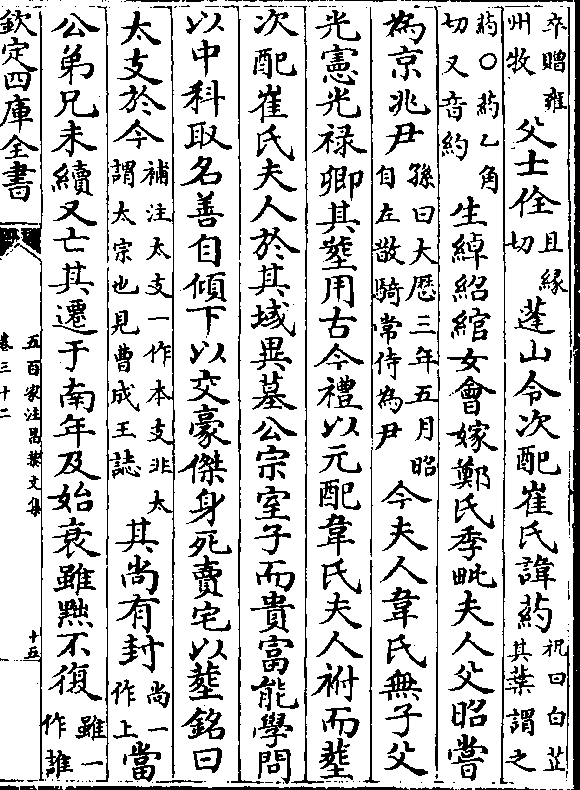 卒贈雍州牧父士佺且緣切蓬山令次配崔氏諱葯祝曰白芷其葉謂之
葯○葯乙角切又音約生綽紹綰女會嫁鄭氏季毗夫人父昭嘗
為京兆尹孫曰大厯三年五月昭自左散騎常侍為尹今夫人韋氏無子父
光憲光禄卿其塟用古今禮以元配韋氏夫人祔而塟
次配崔氏夫人於其域異墓公宗室子而貴富能學問
以中科取名善自傾下以交豪傑身死賣宅以塟銘曰
太支於今補注太支一作本支非太謂太宗也見曹成王誌其尚有封尚一作上當
公弟兄未續又亡其遷于南年及始衰雖黜不復雖一作誰
欽定四庫全書
五百家注昌黎文集
卷三十二
十五